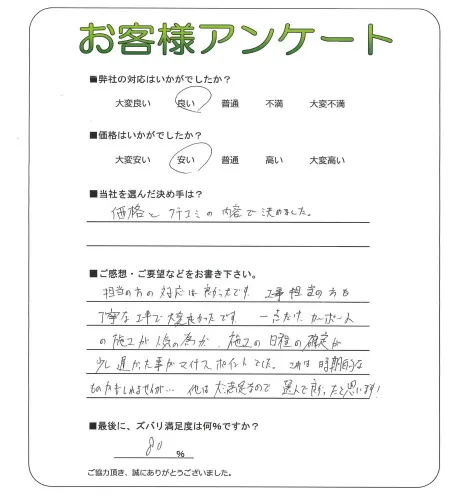 お客様アンケート
■弊社の対応はいかがでしたか？
大変良い 良い 普通 不満 大変不満
■価格はいかがでしたか？
大変安い 安い 普通 高い 大変高い
■当社を選んだ決め手は？
価格とクチコミの内容で決めました。
■ご感想・ご要望などをお書き下さい。
担当の方の対応は良かったです。工事担当の方も
丁寧な工事で大変良かったです。一点だけ、カーポート
の施工が人気の為か、施工の日程の確定が
少し遅かった事がマイナスポイントでした。これは時期的な
ものかもしれませんが… 他は大満足なので選んで良かったと思います!
■最後に、ズバリ満足度は何%ですか？
80 %
ご協力頂き、誠にありがとうございました。